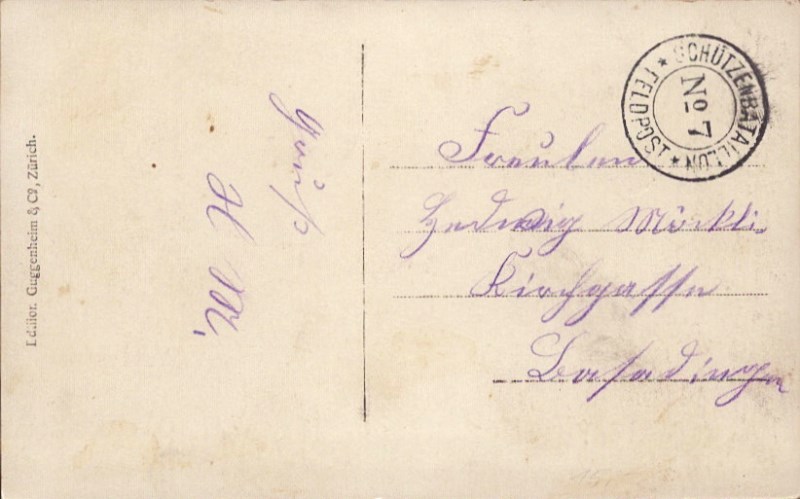 Editor. Guggenheim & Cº, Zürich.
Gruß
H M.
SCHÜTZENBATAILLON
Nº 7
FELDPOST
Freulen
Hedwig Mörkli
Kirchgasse
Basadingen